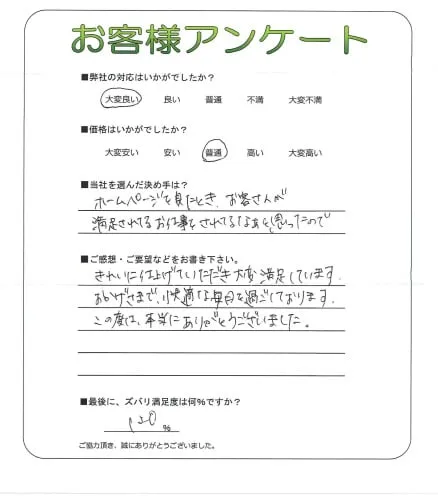 お客様アンケート
■弊社の対応はいかがでしたか？
大変良い 良い 普通 不満 大変不満
■価格はいかがでしたか？
大変安い 安い 普通 高い 大変高い
■当社を選んだ決め手は？
ホームページを見たとき、お客さんが
満足されてるお仕事をされてるなあと思ったので
■ご感想・ご要望などをお書き下さい。
きれいに仕上げていただき大変満足しています。
おかげさまで、快適な毎日を過ごしております。
この度は、本当にありがとうございました。
■最後に、ズバリ満足度は何％ですか？
％
ご協力頂き、誠にありがとうございました。